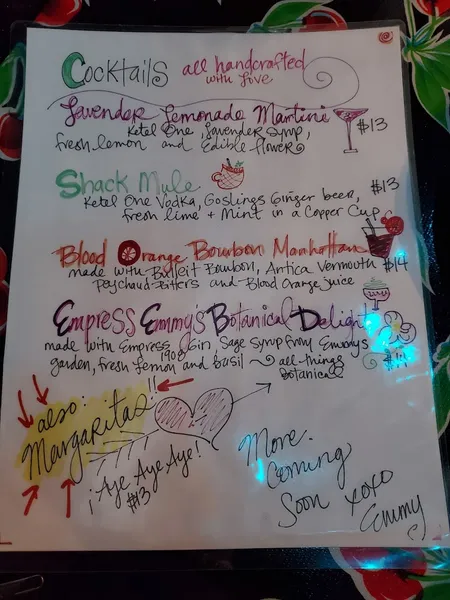 Cocktails all handcrafted
with love
Lavender Lemonade Martini
Ketel One, lavender Symp, $13
fresh lemon and Edible flower
Shack Mule
Ketel One Vodka, Goslings Ginger beer, $13
fresh lime + Mint in a Copper Cup
Blood Orange Bourbon Manhattan
made with Bulleit Bourbon, Antica Vermouth $14
Peychaud Bitters and Blood Orange juice
Empress Emmy's Botanical Delight
made with Empress 1908 Gin Sage Symp from Emmys
garden, fresh lemon and basil ~ all things
Botanical
also:
Margaritas!!
¡Aye Aye Aye!
$13
More
Coming
Soon xoxo
Emmy